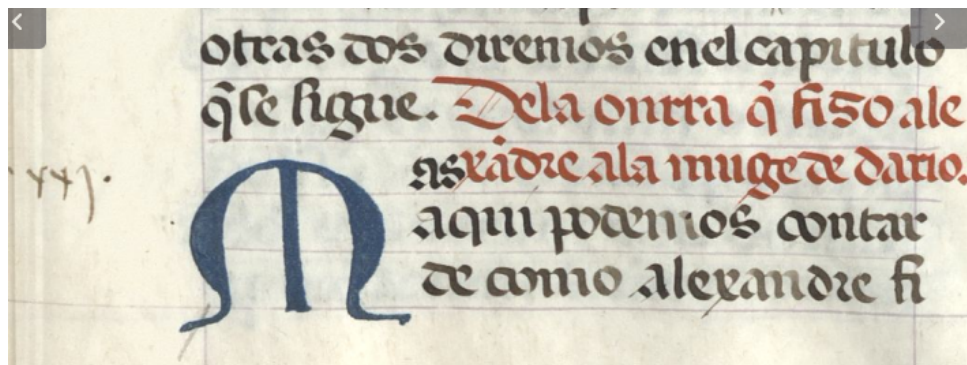 otras dos diremos enel capitulo
q̃ se sigue. Dela onrra q̃ fiso ale
xxj.
M as xãdre ala muger de dario.
aqui podemos contar
de como alexandre fi